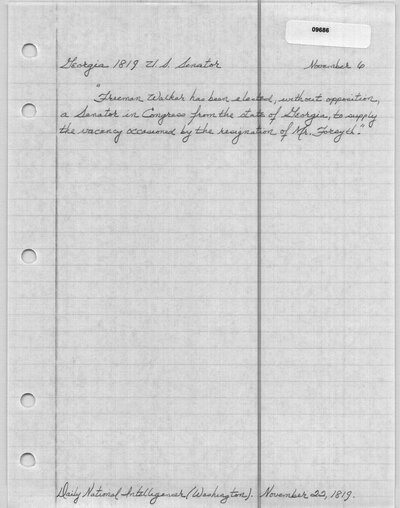 09686
Georgia 1819 U.S. Senator November 6
"Freeman Walker has been elected, without opposition,
a Senator in Congress from the state of Georgia, to supply
the vacancy occasioned by the resignation of Mr. Forsyth."
Daily National Intelligencer (Washington). November 22, 1819.